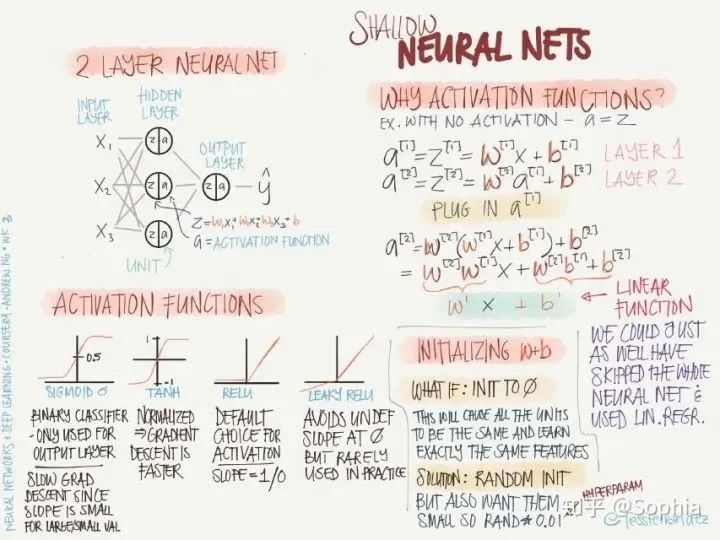 SHALLOW
NEURAL NETS
2 LAYER NEURAL NET
INPUT
LAYER
HIDDEN
LAYER
OUTPUT
LAYER
X₁
X₂
X₃
z a
z a
z a
z a
ŷ
Z = W₁X₁ + W₂X₂ + W₃X₃ + b
a = ACTIVATION FUNCTION
UNIT
WHY ACTIVATION FUNCTIONS?
EX. WITH NO ACTIVATION - a = Z
a^[1] = Z^[1] = W^[1]X + b^[1] LAYER 1
a^[2] = Z^[2] = W^[2]a^[1] + b^[2] LAYER 2
PLUG IN a^[1]
a^[2] = W^[2](W^[1]X + b^[1]) + b^[2]
= W^[2]W^[1]X + W^[2]b^[1] + b^[2]
W' X + b'
LINEAR
FUNCTION
WE COULD JUST
AS WELL HAVE
SKIPPED THE WHOLE
NEURAL NET &
USED LIN. REGR.
ACTIVATION FUNCTIONS
0.5
SIGMOID σ
BINARY CLASSIFIER
- ONLY USED FOR
OUTPUT LAYER
SLOW GRAD
DESCENT SINCE
SLOPE IS SMALL
FOR LARGE/SMALL VAL
1
-1
TANH
NORMALIZED
⇒ GRADIENT
DESCENT IS
FASTER
RELU
DEFAULT
CHOICE FOR
ACTIVATION
SLOPE = 1/0
LEAKY RELU
AVOIDS UNDEF
SLOPE AT 0
BUT RARELY
USED IN PRACTICE
INITIALIZING W+b
WHAT IF: INIT TO 0
THIS WILL CAUSE ALL THE UNITS
TO BE THE SAME AND LEARN
EXACTLY THE SAME FEATURES
SOLUTION: RANDOM INIT
BUT ALSO WANT THEM
SMALL SO RAND * 0.01
HYPERPARAM
知乎 @Sophia
@jessfernandez
NEURAL NETWORKS & DEEP LEARNING · COURSERA · ANDREW NG · WK 3